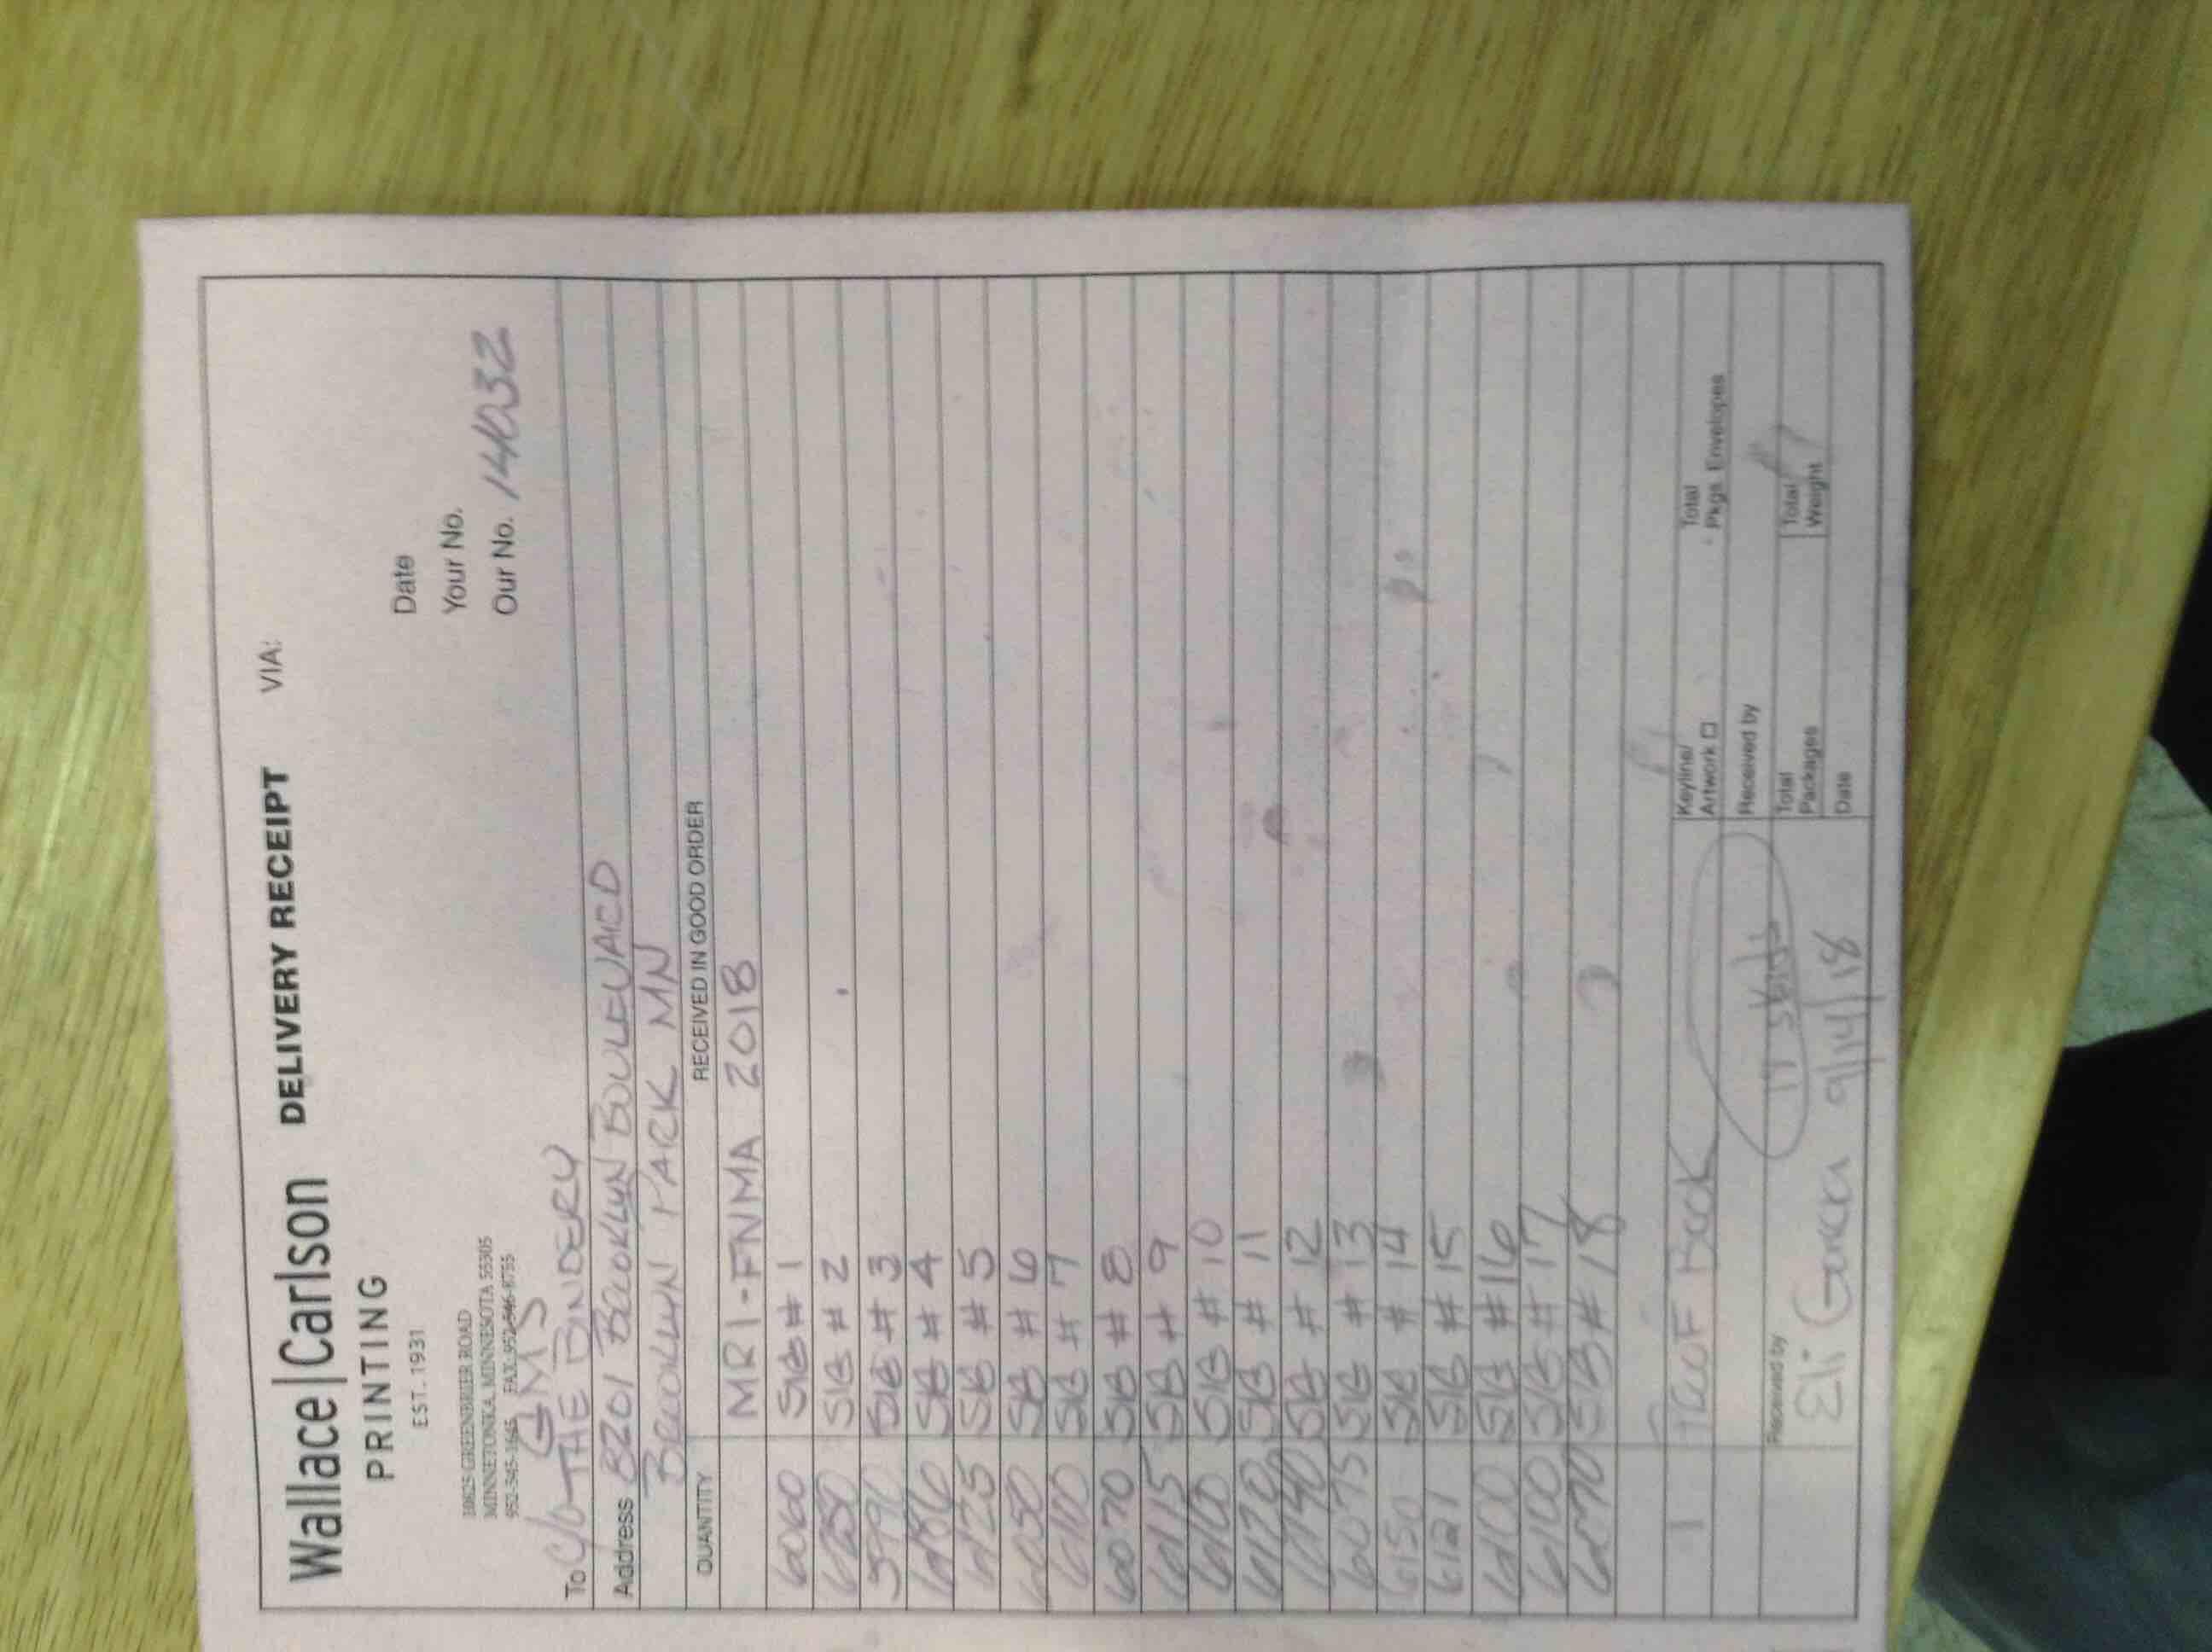 Wallace|Carlson DELIVERY RECEIPT VIA:
PRINTING
EST. 1931
Date
10825 GREENBRIER ROAD
MINNETONKA, MINNESOTA 55305
Your No.
Our No. 14032
GMS
To C/O THE BINDERY
Address 8201 BROOKLYN BOULEVARD
BROOKLYN PARK MN
QUANTITY RECEIVED IN GOOD ORDER
MRI-FNMA 2018
6060 SIG # 1
SIG # 2
5990 SIG # 3
SIG # 4
6125 SIG # 5
6050 SIG # 6
6110 SIG # 7
6070 SIG # 8
6115 SIG # 9
6100 SIG # 10
6120 SIG # 11
6140 SIG # 12
6075 SIG # 13
6150 SIG # 14
6121 SIG # 15
6100 SIG # 16
6100 SIG # 17
SIG # 18
1 PROOF BOOK
Keyline/
Artwork
Total
Pkgs. Envelopes
Received by
Received by
17 skids
Total
Packages
Total
Weight
Eli Garcia 9/14/18
Date